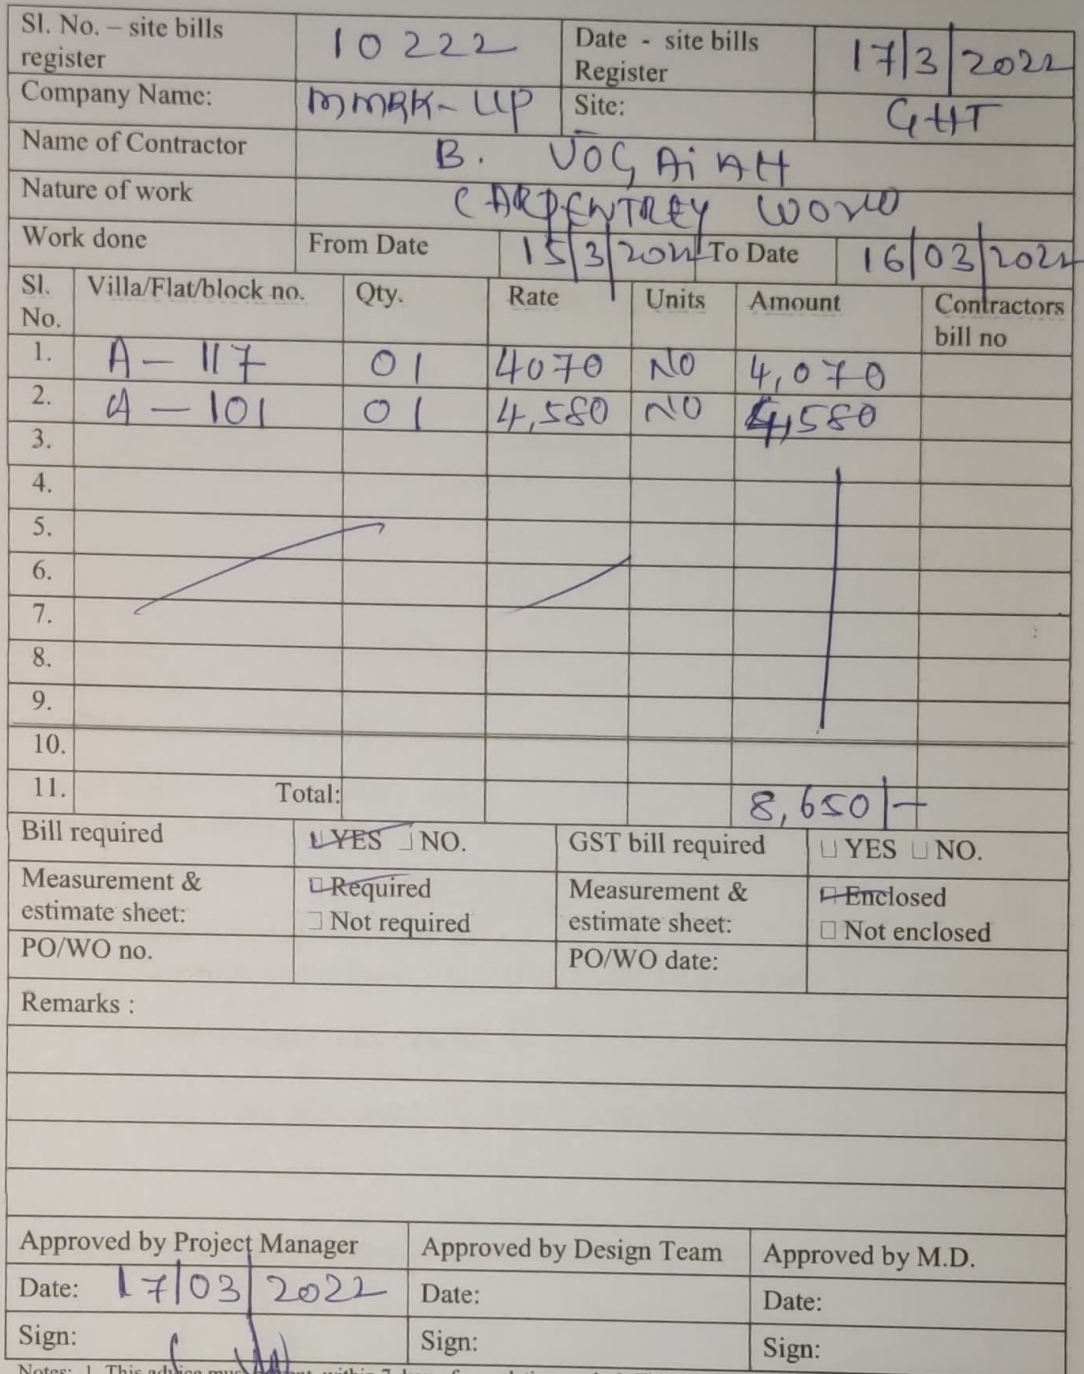 Sl. No. – site bills register 10222 Date - site bills Register 17/3/2022
Company Name: MMRK-UP Site: GHT
Name of Contractor B. VOGAiAH
Nature of work CARPENTREY WORK
Work done From Date 15/3/2022 To Date 16/03/2022
Sl. No. Villa/Flat/block no. Qty. Rate Units Amount Contractors bill no
1. A-117 01 4070 NO 4,070
2. A-101 01 4,580 NO 4,580
3.
4.
5.
6.
7.
8.
9.
10.
11. Total: 8,650/-
Bill required YES NO. GST bill required YES NO.
Measurement & estimate sheet: Required Not required Measurement & estimate sheet: Enclosed Not enclosed
PO/WO no. PO/WO date:
Remarks :
Approved by Project Manager Approved by Design Team Approved by M.D.
Date: 17/03/2022 Date: Date:
Sign: Sign: Sign: